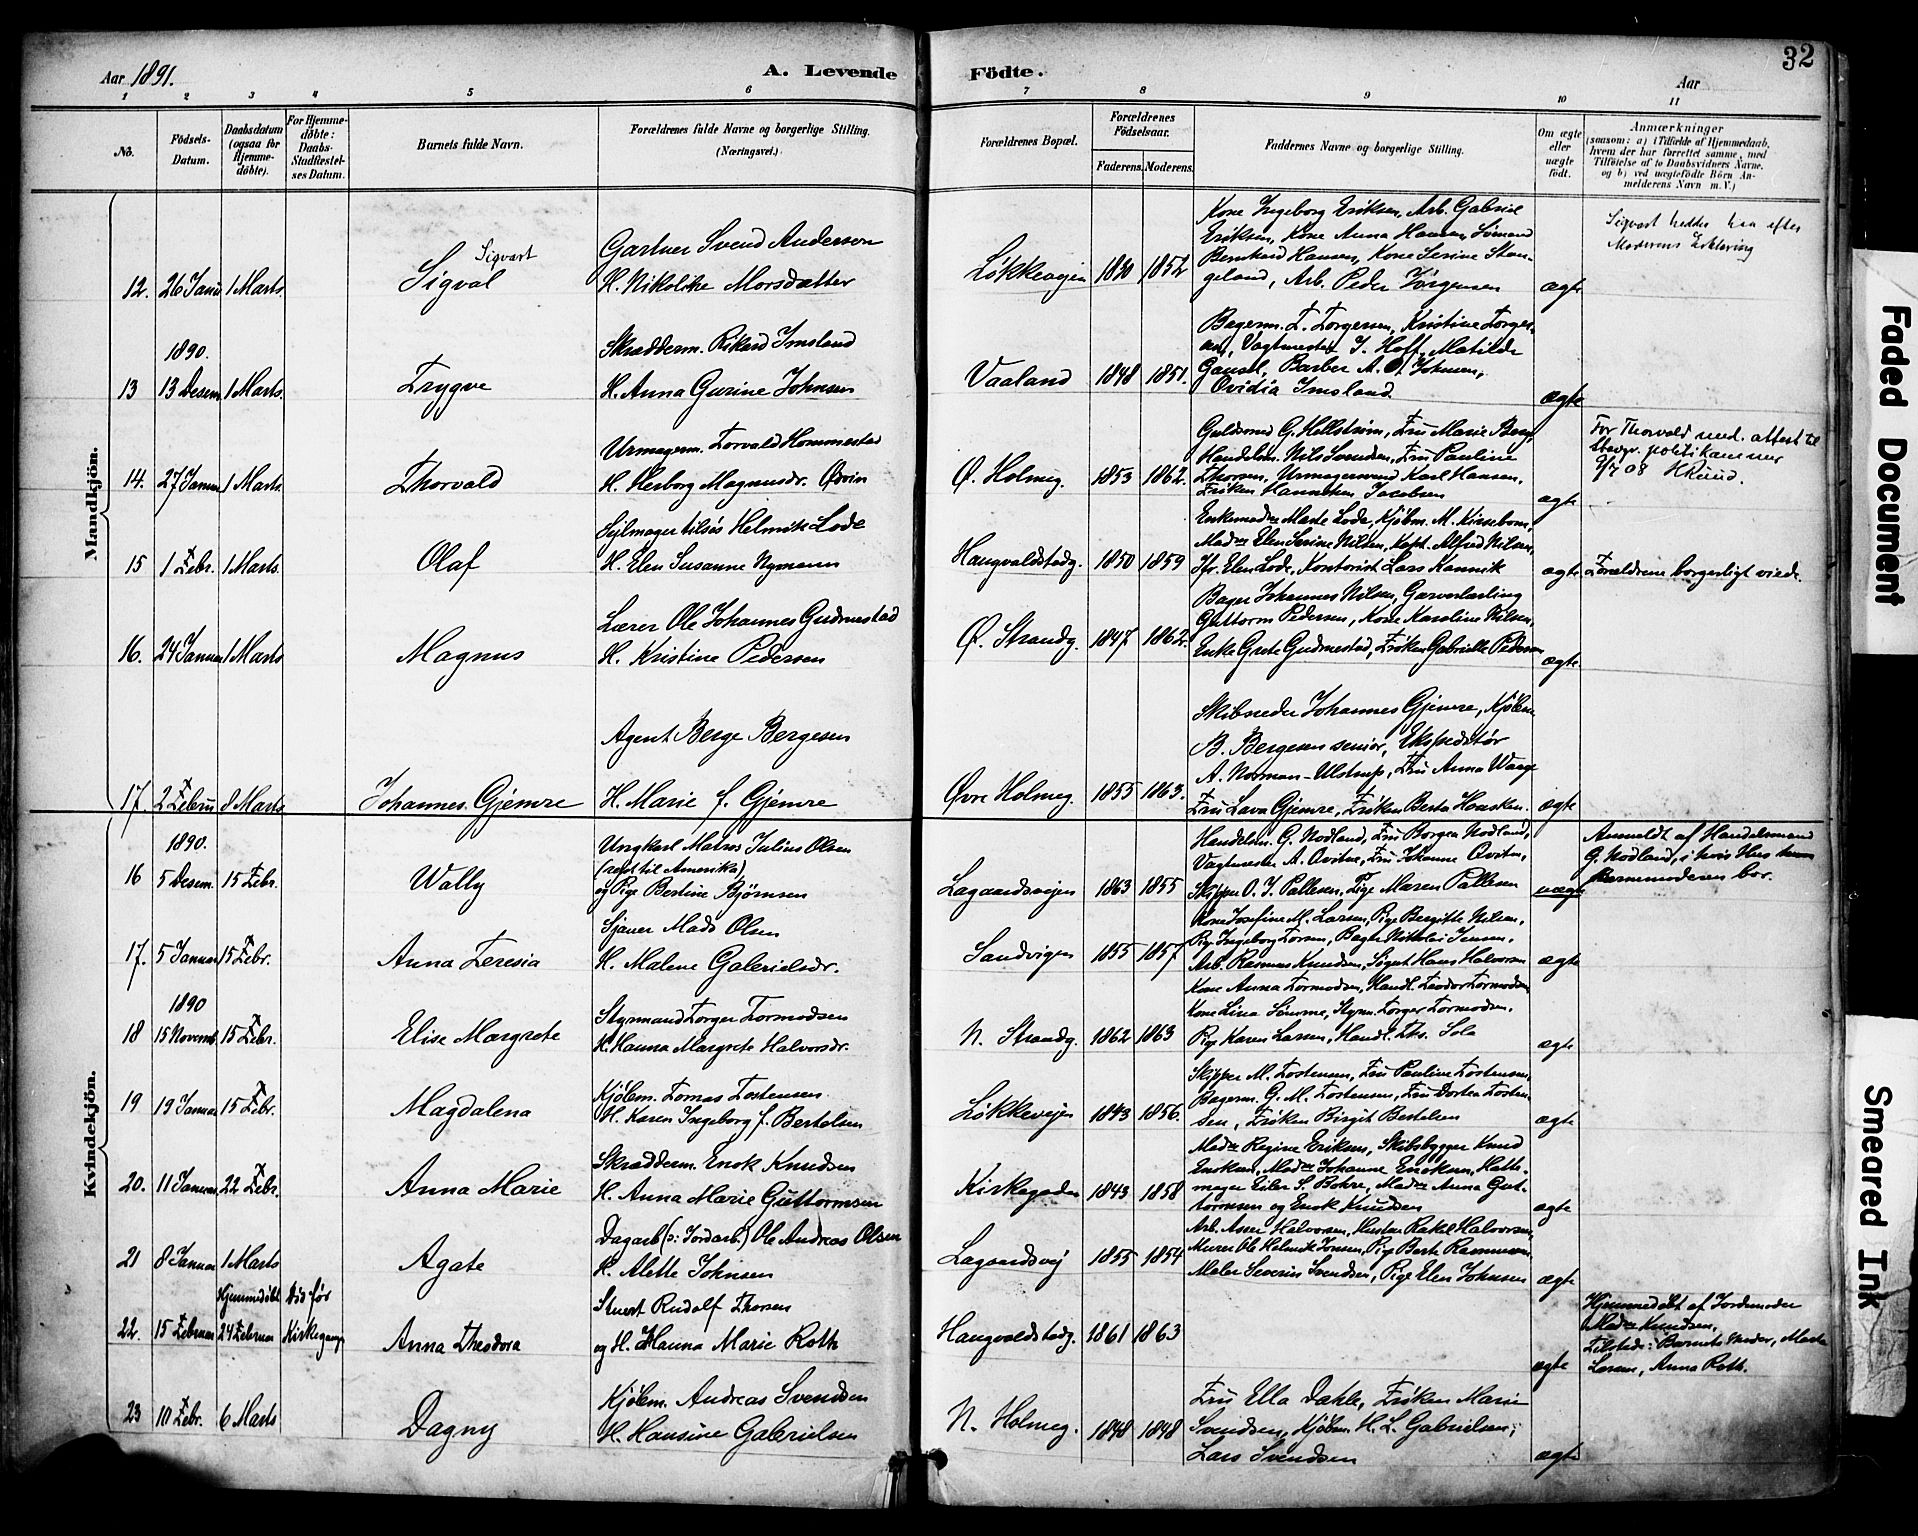 Aar 1891.
A. Levende Födte.
Aar
32
1 2 3 4 5 6 7 8 9 10 11
No.
Födsels-Datum.
Daabsdatum (ogsaa for Hjemmedøbte).
For Hjemmedøbte: Daabs-Stadfæstelses Datum.
Barnets fulde Navn.
Forældrenes fulde Navne og borgerlige Stilling.
(Næringsvei.)
Forældrenes Bopæl.
Forældrenes Födselsaar.
Faderens. Moderens.
Faddernes Navne og borgerlige Stilling.
Om ægte eller uægte födt.
Anmærkninger
(saasom: a) i Tilfælde af Hjemmedaab, hvem der har forrettet samme, med Tilföielse af to Daabsvidners Navne, og b) ved uægtefödte Börn Anmelderens Navn m.V.)
Mandkjön.
12. 26 Janu 1 Marts.
Sigvart
Sigval
Gartner Svend Anderson
H. Nikolike Morsdatter
Løkkeveien 1852
Kone Ingeborg Eriksen, Arb. Gabriel
Eriksen, Kone Anna Hansen, Sömand
Bernhard Hansen, Kone Serine Stan-
geland, Arb. Peder Jörgensen
ægte
Sigvart hedder han efter
Moderens Erklæring
1890.
13 13 Desem 1 Marts.
Trygve
Skrædderm. Rikard Imsland
H. Anna Gurine Johnsen
Vaaland 1848 1851.
Bagerm. T. Torgersen, Kristine Torger-
sen, Vagtmester J. Hoff, Matilde
Gausel, Barber A. O. Johnsen,
Ovidia Imsland
ægte
14. 27 Januar 1 Marts.
Thorvald
Urmagerm. Torvald Hommestad
H. Herborg Magnusdr. Ødvin
Ø. Holmeg. 1853 1862.
Guldsmed G. Hellstrøm, Fru Marie Berg,
Handelsm. Nils Svendsen, Fru Pauline
Thorsen, Urmagersvend Karl Hansen,
Frøken Hanneken Jacobsen
ægte
For Thorvald med. attest til
Stavgr. politikammer
9/7 08 HRuud.
15 1 Febr. 1 Marts.
Olaf
Sejlmager tilsøs Helmik Lode
H. Elen Susanne Nymann
Haugvaldstadg. 1850 1859
Enkemadme Marte Lode, Kjøbm. M. Kisseborn,
Madme Elen Serine Nilsen, Kapt. Alfred Nilsen,
Jfr. Elen Lode, Kontorist Lars Kannik
ægte
Forældrene borgerligt viede.
16. 24 Januar 1 Marts
Magnus
Lærer Ole Johannes Gudmestad
H. Kristine Pedersen
Ø. Strandg. 1847 1862.
Bager Johannes Nilsen, Garverlærling
Guttorm Pedersen, Kone Karoline Nilsen,
Enke Grete Gudmestad, Frøken Gabrielle Pedersen
ægte
17. 2 Februar 8 Marts
Johannes Gjemre
Agent Berge Bergesen
H. Marie f. Gjemre
Øvre Holmeg. 1855 1863.
Skibsreder Johannes Gjemre, Kjøbm.
B. Bergesen senior, Ekspeditør
A. Norman-Ulstrup, Fru Anna Waage
Fru Lava Gjemre, Frøken Berta Hansken.
ægte
Kvindekjön.
1890.
16 5 Desem. 15 Febr.
Wally
Ungkarl Matros Julius Olsen
(rest til Amerika)
og Pige Bertine Bjørnsen
Lagaardsveien 1863 1855
Handelsm. G. Nodland, Fru Borgea Nodland,
Vagtmester A. Qvitne, Fru Johanne Qvitne,
Skipper O. J. Pallesen, Pige Maren Pallesen
uægte
Anmeldt af Handelsmand
G. Nodland, i hvis Hus
Barnemoderen bor.
17. 5 Januar 15 Febr.
Anna Teresia
Sjauer Mads Olsen
H. Malene Gabrielsdr.
Sandvigen 1855 1857
Kone Josefine M. Larsen, Pige Bergitte Nilsen,
Pige Ingeborg Torsen, Bager Nikolai Jensen,
Arb. Rasmus Knudsen, Hans Halvorsen
ægte
1890
18 15 Novemb. 15 Febr.
Elise Margrete
Styrmand Torger Tormodsen
H. Hanna Margrete Halvorsdr.
N. Strandg. 1862 1863
Kone Anna Tormodsen, Handl. Teodor Tormodsen,
Kone Lina Sömme, Styrm. Torger Tormodsen,
Pige Karen Larsen, Handl. Ths. Sola
ægte
19 19 Januar 15 Febr.
Magdalena
Kjøbm. Tomas Tostensen
H. Karen Ingeborg f. Bertelsen
Løkkeveien 1843 1856.
Skipper M. Tostensen, Fru Pauline Tostensen,
Bagerm. G. M. Tostensen, Fru Dortea Tosten-
sen, Frøken Birgit Bertelsen
ægte
20. 11 Januar 22 Febr.
Anna Marie
Skrædderm. Enok Knudsen
H. Anna Marie Guttormsen
Kirkegaden 1843 1858
Madme Regine Eriksen, Skibsbygger Knud
Enoksen, Madme Johanne Enoksen, Hatte-
mager Eiler S. Bohre, Madme Anna Gut-
tormsen og Enok Knudsen
ægte
21 8 Januar 1 Marts
Agate
Dagarb. (o: Jordarb.) Ole Andreas Olsen
H. Alette Johnsen
Lagaardsvej 1855 1854
Arb. Asser Halvorsen, Hustru Rakel Halvorsen,
Murer Ole Helmik Jonsen, Pige Berte Rasmussen
Maler Severin Svendsen, Pige Elen Johnsen
ægte
22. 15 Februar
Hjemmedøbt 24 Februar
Död før Kirkegang.
Anna Theodora
Stuert Rudolf Thorsen
og H. Hanna Marie Roth
Haugvaldstadg. 1861 1863
ægte
Hjemmedøbt af Jordemoder
Madme Knudsen.
Tilstede: Barnets Moder, Marta
Larsen, Anna Roth.
23 10 Febr. 6 Marts
Dagny
Kjøbm. Andreas Svendsen
H. Hansine Gabrielsen
N. Holmeg. 1848 1848
Fru Ella Dahle, Frøken Marie
Svendsen, Kjøbm. H. L. Gabrielsen,
Lars Svendsen
ægte
Faded Document
Smeared Ink